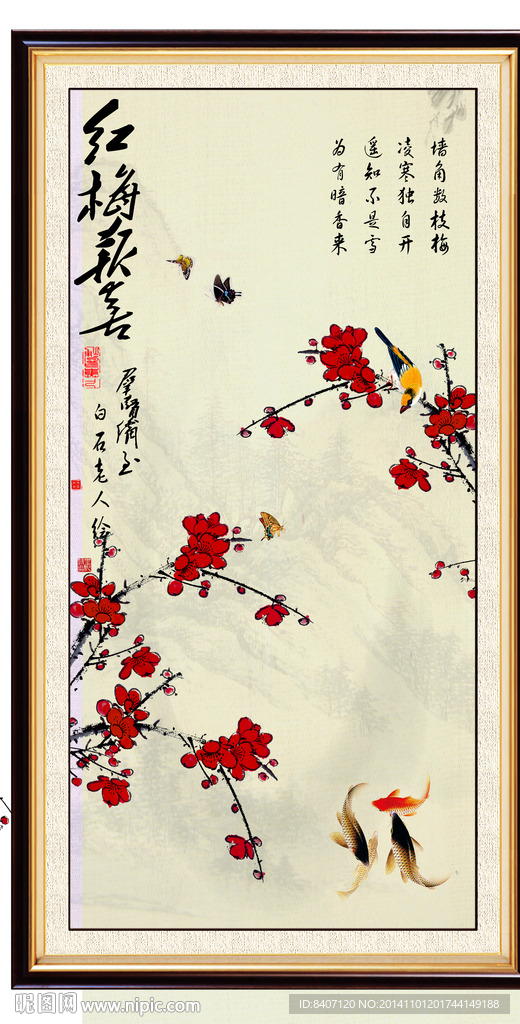 红梅报喜
墙角数枝梅
凌寒独自开
遥知不是雪
为有暗香来
白石老人绘
昵图网 www.nipic.com
ID:8407120 NO:20141101201744149188